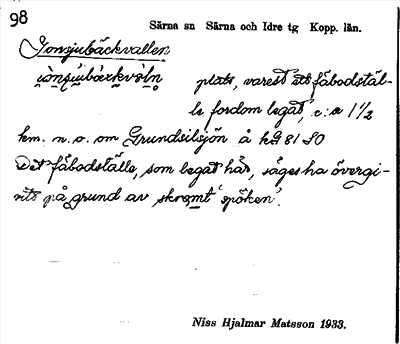 98
Särna sn Särna och Idre tg Kopp. län.
Jonsjubäckvallen
plats, varest ett fäbodstäl-
le fordom legat, c:a 1 1/2
km. n.o. om Grundsilsjön å kB 81 SO
Det fäbodställe, som legat här, säges ha övergi-
vits på grund av skrømt 'spöken'.
Niss Hjalmar Matsson 1933.